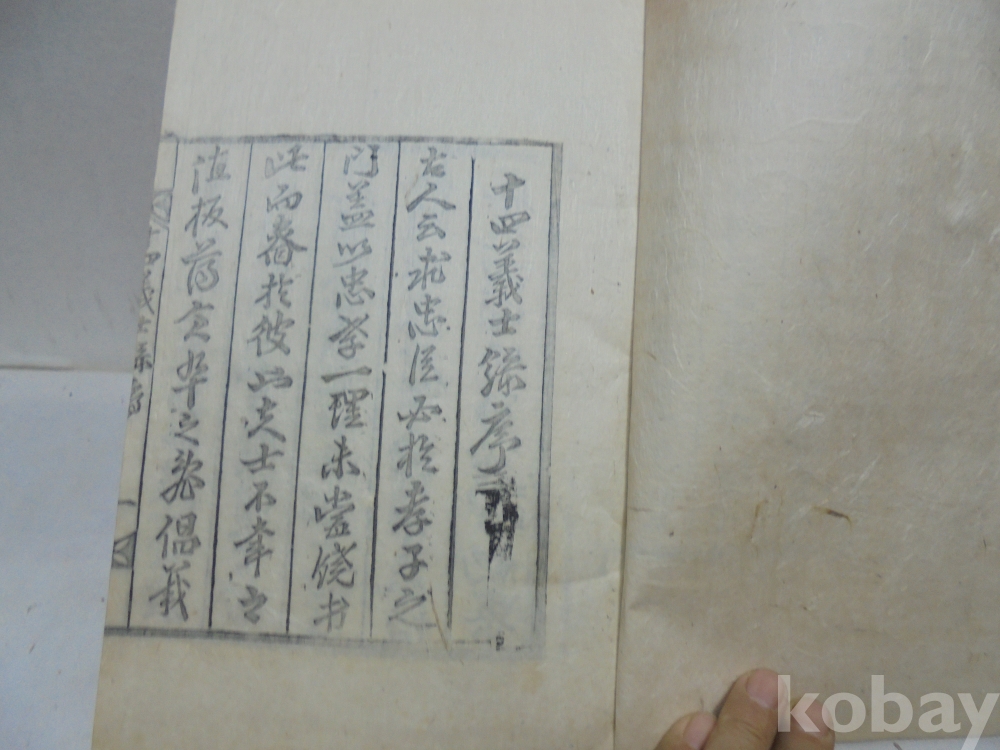 十四義士錄序
古人云求忠臣必於孝子之
門盖以忠孝一理未嘗饒於
此而舂於彼也夫士不幸而
值板蕩之際之能倡義
十四義士錄序
一
kobay